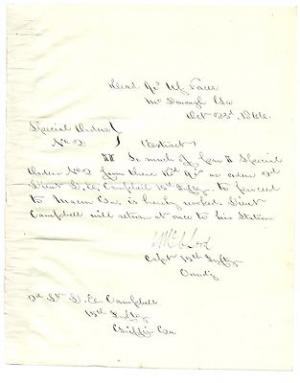 Head Qrs U.S. Forces
McDonough Ga
Oct 23d, 186
Special Orders
No 2
Extract
II So much of Par II Special
Orders No 2 from these Hd Qrs as orders 2d
Lieut D. E. Campbell 15th Infty. to proceed
to Macon Ga. is hereby revoked. Lieut
Campbell will return at once to his Station
Capt 15th Infty
Comdg
2d Lt D. E. Campbell
15th Infty
Griffin Ga